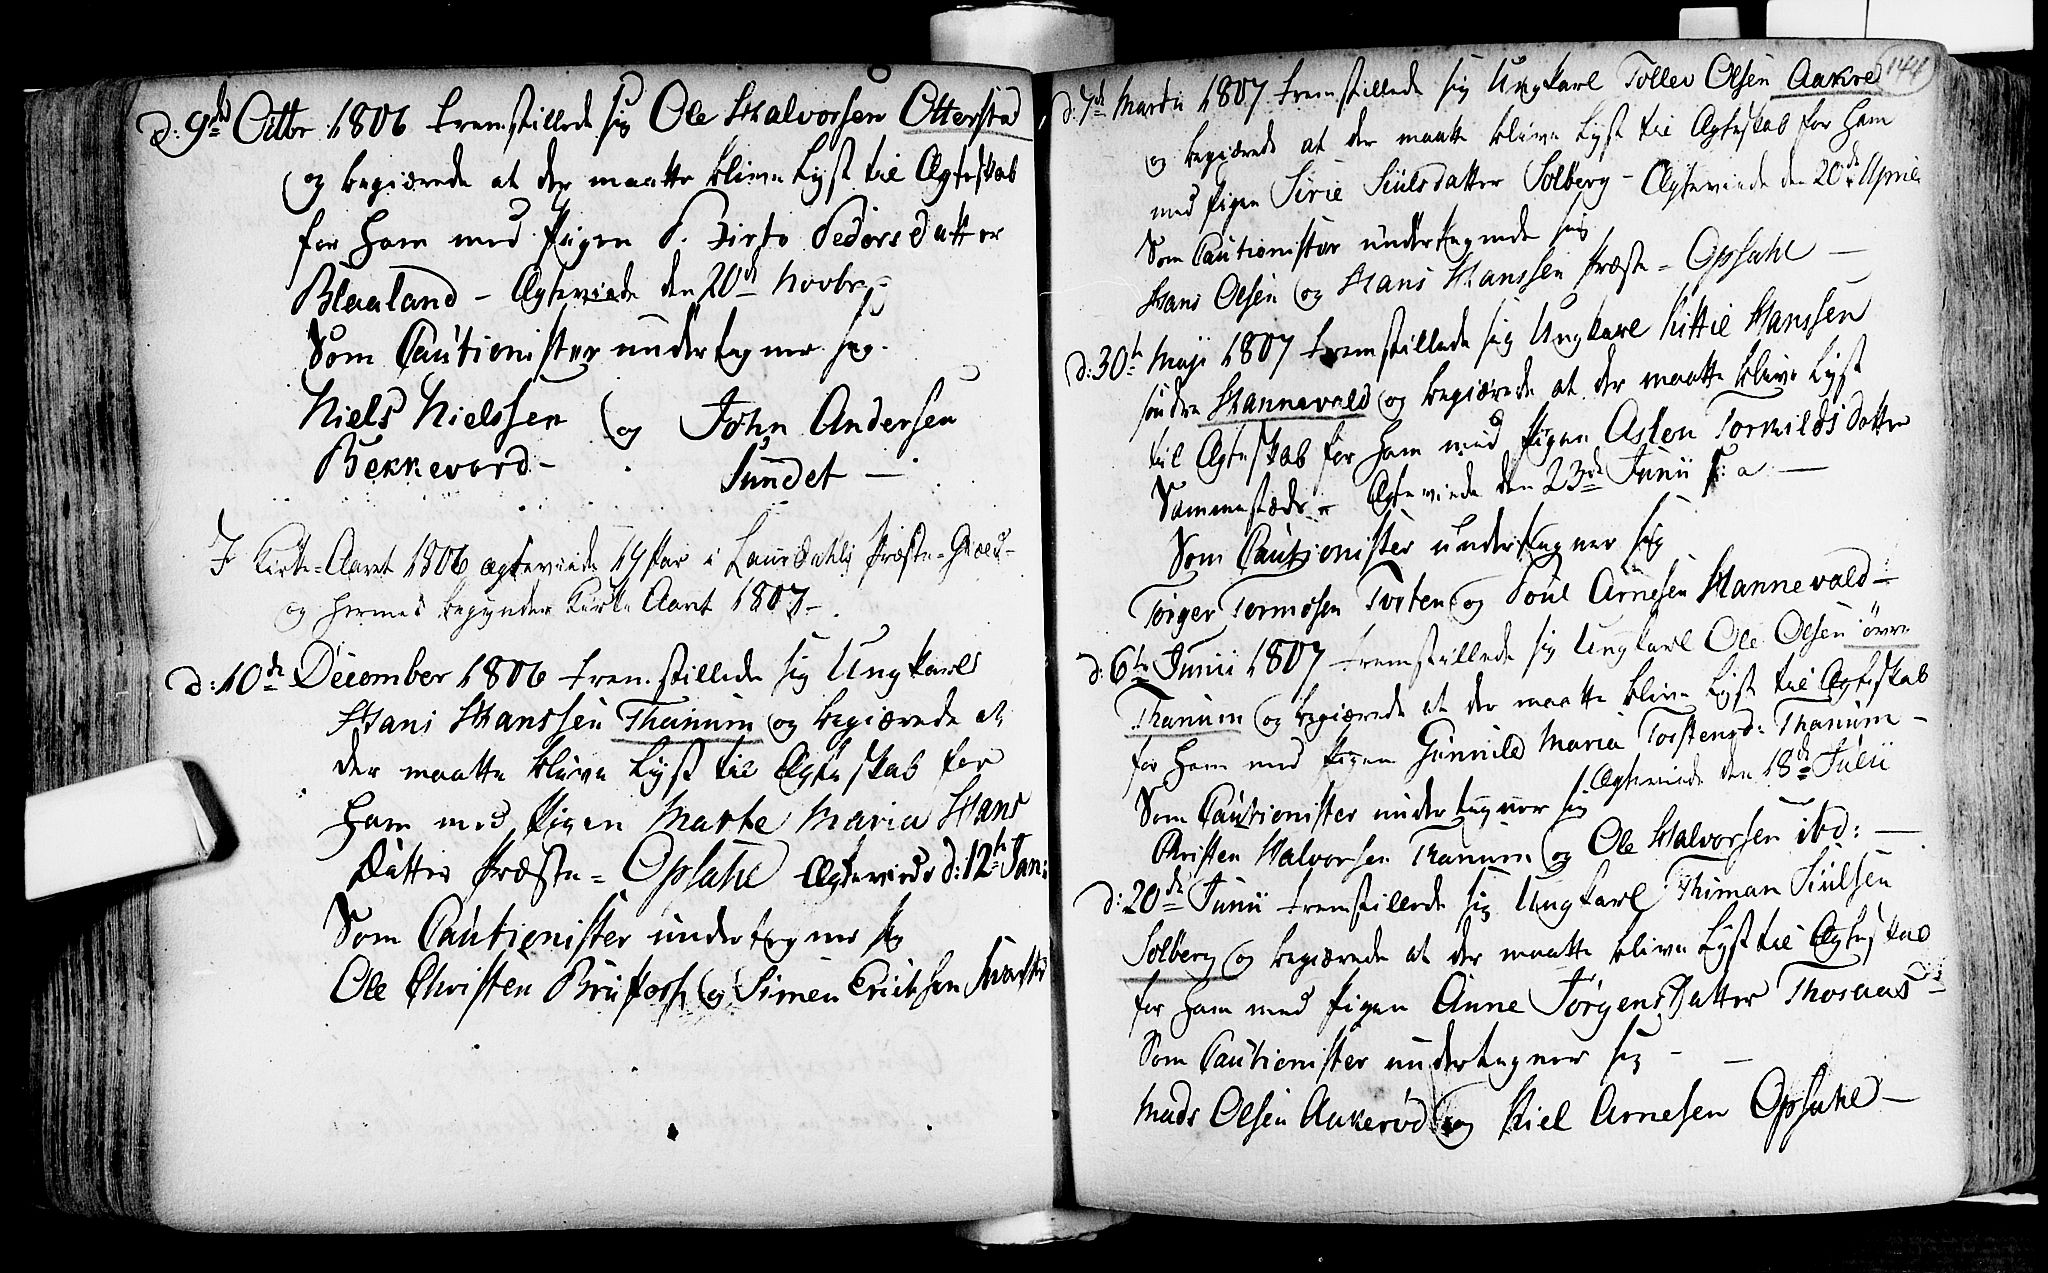 d: 9de Octbr 1806 fremstillede sig Ole Halvorsen Otterstad
og begiærede at der maatte blive Lyst til Ægteskab
for ham med Pigen P. Birte PedersDatter
Blaaland - Ægteviede den 20de Novbr -
Som Cautionister undertegner sig.
Niels Nielssen og John Andersen
Bekkevard - Sundet -
I Kirke-Aaret 1806 ægteviede 19 Par i Laurdahls Præste-Giæld -
og hermed begynder Kirke Aaret 1807 -
d: 10de December 1806 fremstillede sig Ungkarls
Hans Hanssen Thanum og begiærede at
der maatte blive Lyst til Ægteskab for
ham med Pigen Marte Maria Hans
Datter Præste = Opsahl Ægteviede d: 12te Jan:
Som Cautionister undertegner sig
Ole Christen og Simen Erichsen
144
d: 7de Martii 1807 fremstillede sig Ungkarl Tollev Olsen Aakre
og begiærede at der maatte blive Lyst til Ægteskab for ham
med Pigen Sirie Siulsdatter Solberg - Ægteviede den 20de April
Som Cautionister undertegnede sig
Hans Olsen og Hans Hanssen Præste = Opsahl -
d: 30te Maji 1807 fremstillede sig Ungkarl Kittil Hanssen
søndre Hannevald og begiærede at der maatte blive Lyst
til Ægteskab for ham med Pigen Aslou Torkildsdatter
Sammestæds - Ægteviede den 23de Junii s: a -
Som Cautionister undertegner sig
Torger Tormosen Tveten og Poul Arnesen Hannevald -
d: 6te Junii 1807 fremstillede sig Ungkarl Ole Olsen övre
Thanum og begiærede at der maatte blive Lyst til Ægteskab
for ham med Pigen Gunnild Maria Torstensd: Thanum -
Ægteviede den 18de Julii
Som Cautionister undertegner sig
Christen Halvorsen Thanum og Ole Halvorsen ibd: -
d: 20de Junii fremstillede sig Ungkarl Thiman Siulsen
Solberg og begiærede at der maatte blive Lyst til Ægteskab
for ham med Pigen Anne JørgensDatter Thoraas -
Som Cautionister undertegner sig -
Mads Olsen Aakerød og Kiel Arnesen Opsahl -